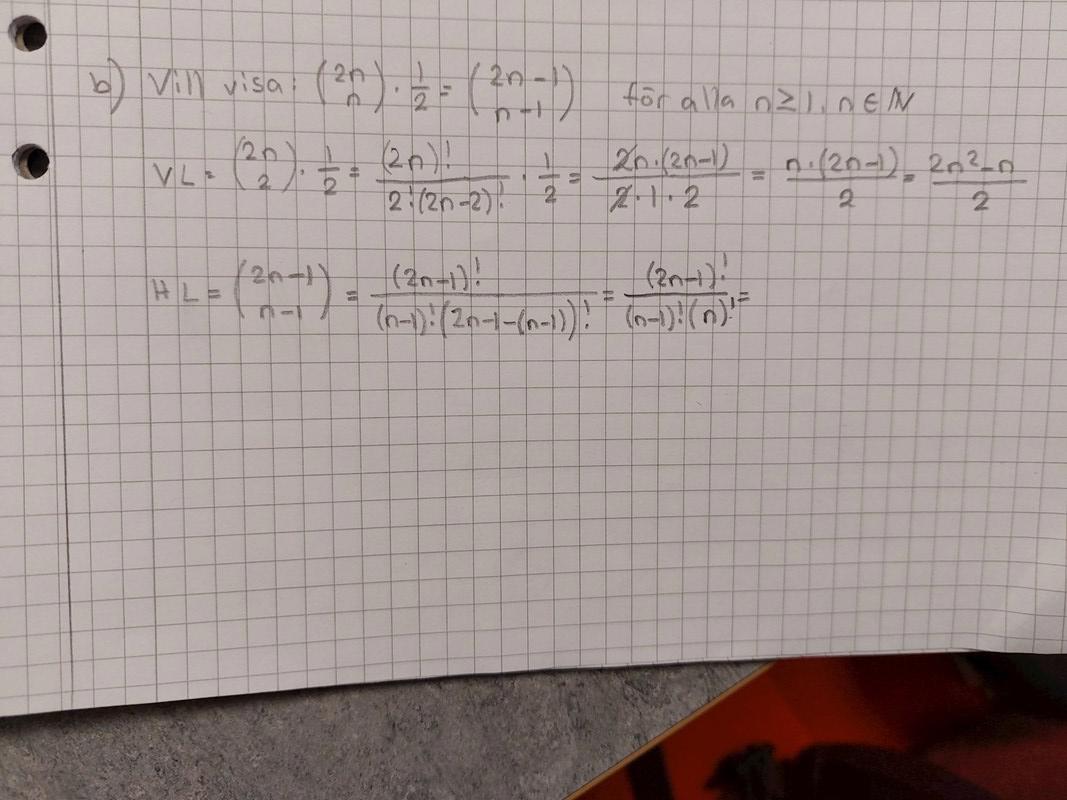 b) Vill visa: (2n n) · 1/2 = (2n-1 n-1) för alla n ≥ 1, n ∈ ℕ
VL = (2n 2) · 1/2 = (2n)! / 2!(2n-2)! · 1/2 = 2n·(2n-1) / 2·1·2 = n·(2n-1) / 2 = 2n²-n / 2
HL = (2n-1 n-1) = (2n-1)! / (n-1)!(2n-1-(n-1))! = (2n-1)! / (n-1)!(n)! =